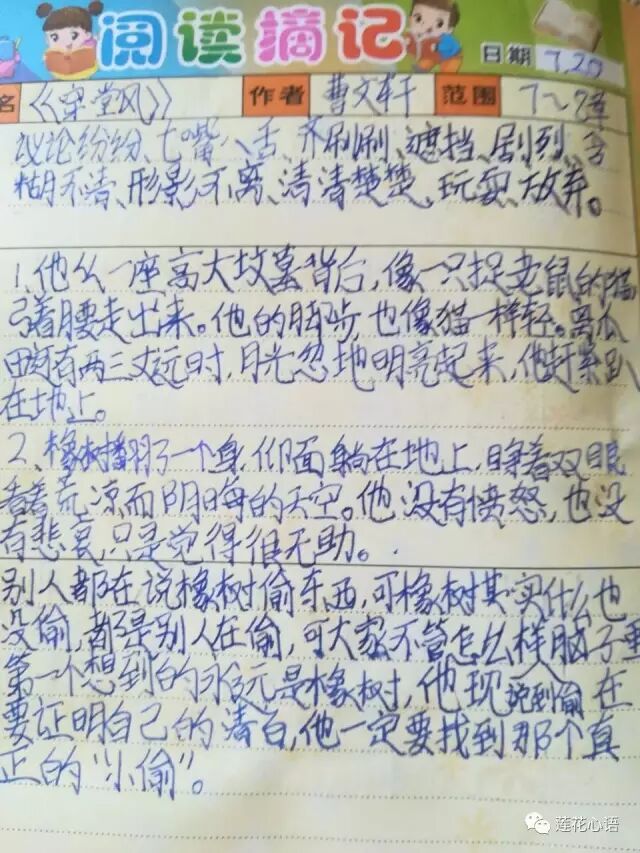 阅读摘记
日期 7.20
名 《穿堂风》 作者 曹文轩 范围 7~8章
议论纷纷、七嘴八舌、齐刷刷、遮挡、剧烈、含
糊不清、形影不离、清清楚楚、玩耍、放弃。
1、他么一座高大坟墓背后,像一只捉老鼠的猫,
弓着腰走出来。他的脚步,也像猫一样轻。离瓜
田还有两三丈远时,月光忽地明亮起来,他赶紧趴
在地上。
2、橡树翻了一个身,仰面躺在地上,睁着双眼
看着荒凉而阴晦的天空。他没有愤怒,也没
有悲哀,只是觉得很无助。
别人都在说橡树偷东西,可橡树其实什么也
没偷,都是别人在偷,可大家不管怎么样脑子里
第一个想到的永远是橡树,他现在
要证明自己的清白,他一定要找到那个真
正的“小偷”。
莲花心语